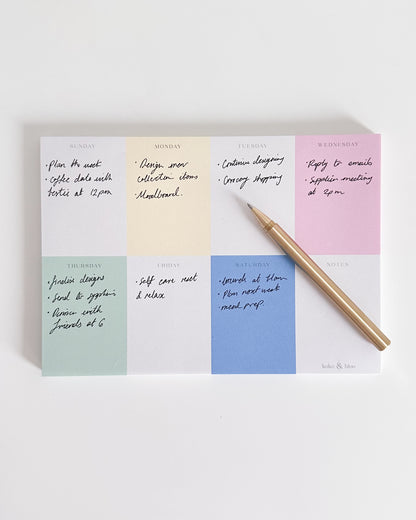 SUNDAY
• Plan the week
• Coffee date with
besties at 12pm
MONDAY
• Design new
collection items
• Moodboard.
TUESDAY
• Continue designing
• Grocery shopping
WEDNESDAY
• Reply to emails
• Supplier meeting
at 2pm
THURSDAY
• finalise designs
• Send to suppliers
• Dinner with
friends at 6
FRIDAY
• Self care reset
& relax
SATURDAY
at 11am
• Plan next week
meal prep
NOTES
&